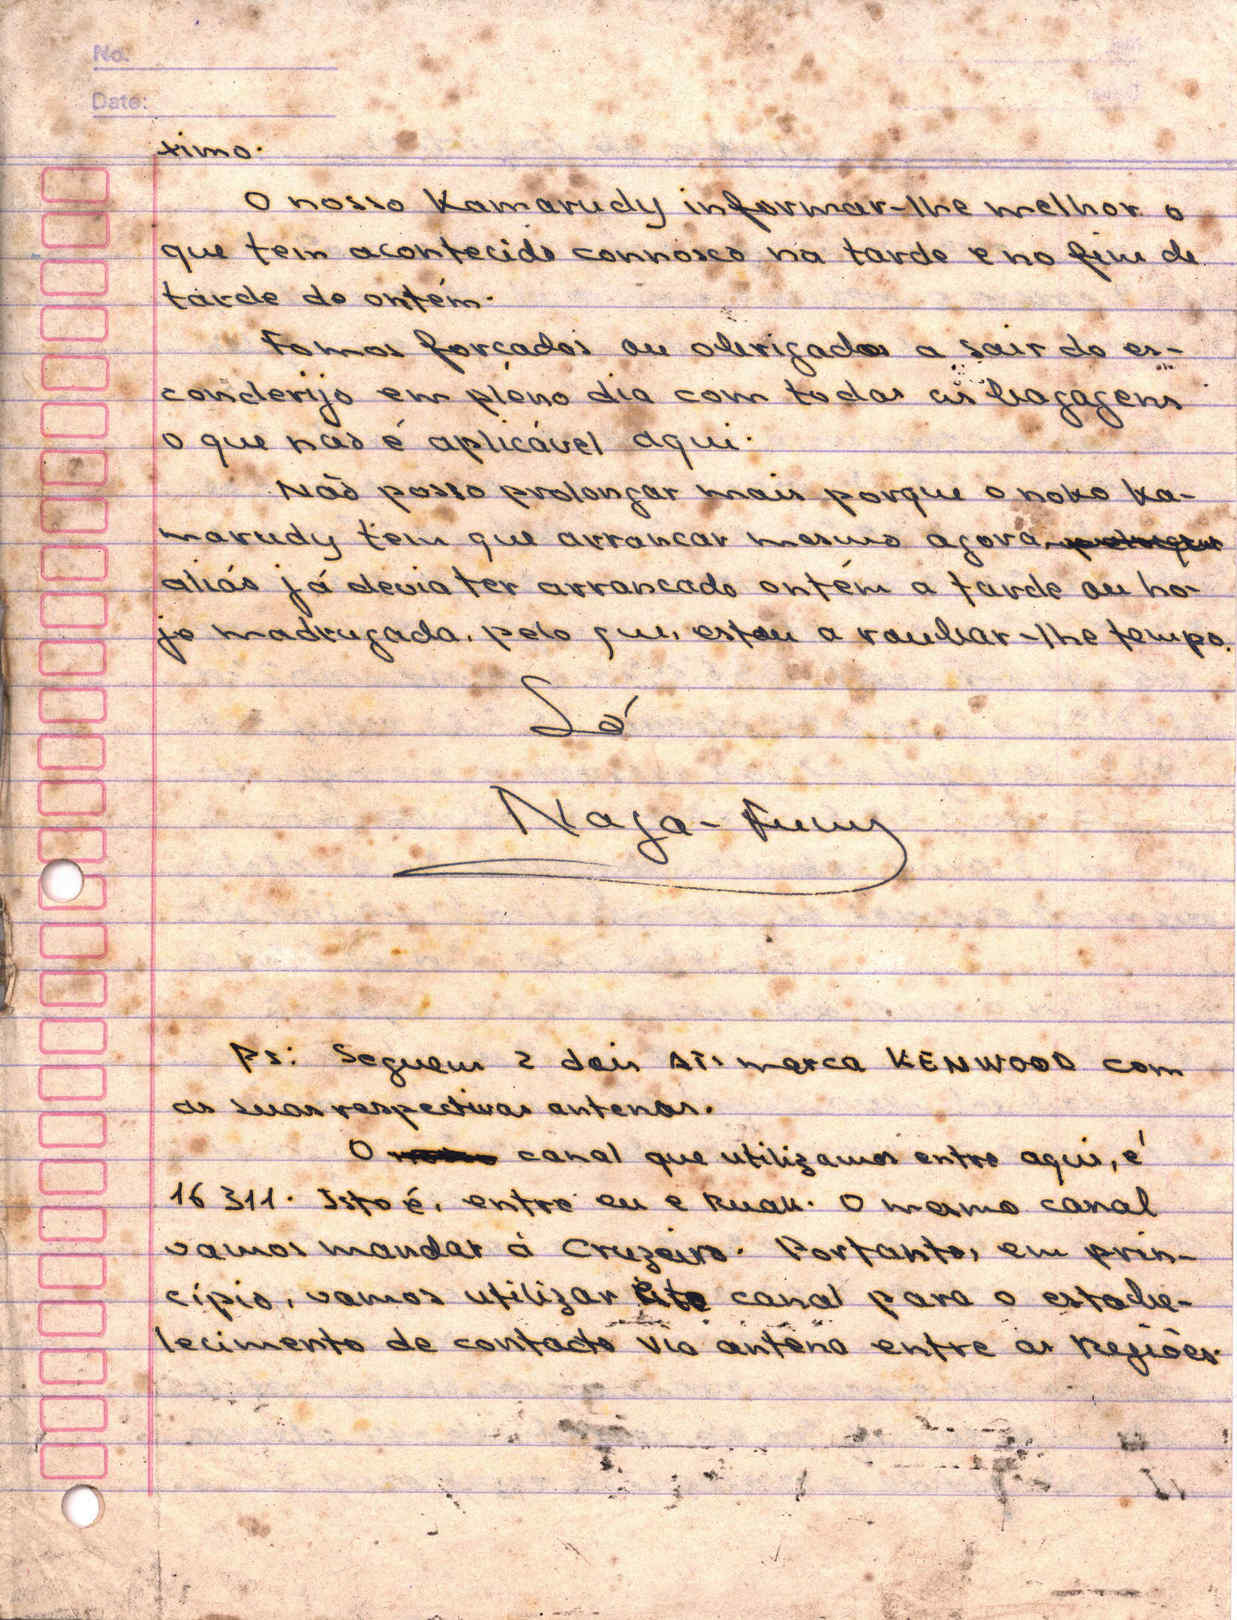 No.
Date:
ximo.
O nosso Kamarudy informar-lhe melhor o
que tem acontecido connosco na tarde e no fim de
tarde de ontém.
Fomos forçados ou obrigados a sair do es-
conderijo em pleno dia com todas as bagagens
o que nao é aplicável aqui.
Não posso prolongar mais porque o nosso Ka-
marudy tem que arrancar mesmo agora
aliás já devia ter arrancado ontém a tarde ou ho-
je madrugada, pelo que, estou a roubar-lhe tempo.
Só
Naga-
Ps: Seguem 2 dois ATs marca KENWOOD com
as suas respectivas antenas.
O canal que utilizamos entre aqui, é
16 311. Isto é, entre eu e Ruak. O mesmo canal
vamos mandar á Cruzeiro. Portanto, em prin-
cípio, vamos utilizar êste canal para o estabe-
lecimento de contacto via antena entre as Regiões.